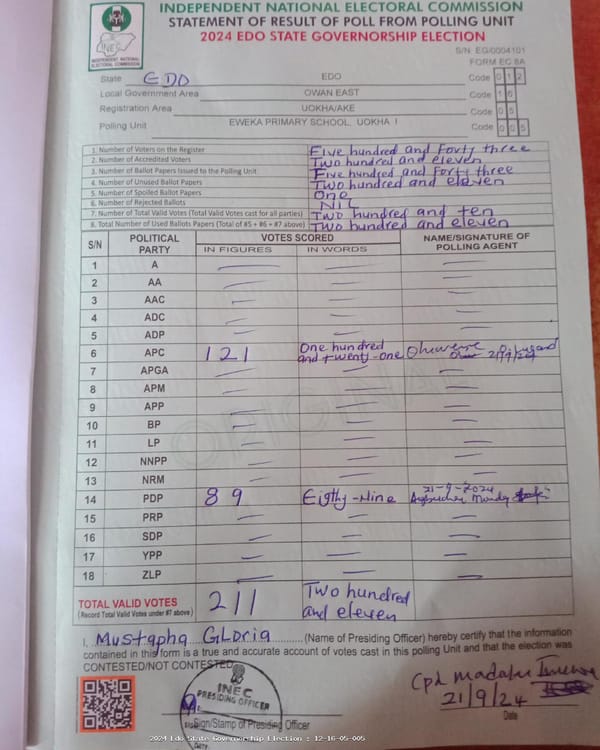 INDEPENDENT NATIONAL ELECTORAL COMMISSION
STATEMENT OF RESULT OF POLL FROM POLLING UNIT
2024 EDO STATE GOVERNORSHIP ELECTION
INEC
INDEPENDENT NATIONAL ELECTORAL COMMISSION
S/N: EG/0004101
FORM EC 8A
State EDO EDO Code 0 1 2
Local Government Area OWAN EAST Code 1 6
Registration Area UOKHA/AKE Code 0 5
Polling Unit EWEKA PRIMARY SCHOOL, UOKHA I Code 0 0 5
1. Number of Voters on the Register Five hundred and Forty three
2. Number of Accredited Voters Two hundred and eleven
3. Number of Ballot Papers Issued to the Polling Unit Five hundred and Forty three
4. Number of Unused Ballot Papers Two hundred and eleven
5. Number of Spoiled Ballot Papers One
6. Number of Rejected Ballots NIL
7. Number of Total Valid Votes (Total Valid Votes cast for all parties) Two hundred and ten
8. Total Number of Used Ballots Papers (Total of #5 + #6 + #7 above) Two hundred and eleven
S/N POLITICAL PARTY VOTES SCORED NAME/SIGNATURE OF POLLING AGENT
IN FIGURES IN WORDS
1 A
2 AA
3 AAC
4 ADC
5 ADP
6 APC 121 One hundred and twenty-one 21/9/24
7 APGA
8 APM
9 APP
10 BP
11 LP
12 NNPP
13 NRM
14 PDP 89 Eigthy-Nine 21-9-2024
15 PRP
16 SDP
17 YPP
18 ZLP
ORIGINAL
TOTAL VALID VOTES 211 Two hundred and eleven
(Record Total Valid Votes under #7 above)
I, Mustapha Gloria (Name of Presiding Officer) hereby certify that the information
contained in this form is a true and accurate account of votes cast in this polling Unit and that the election was
CONTESTED/NOT CONTESTED
INEC
PRESIDING OFFICER
Sign/Stamp of Presiding Officer
DATE
Cpl
21/9/24
Date
2024 Edo State Governorship Election : 12-16-05-005